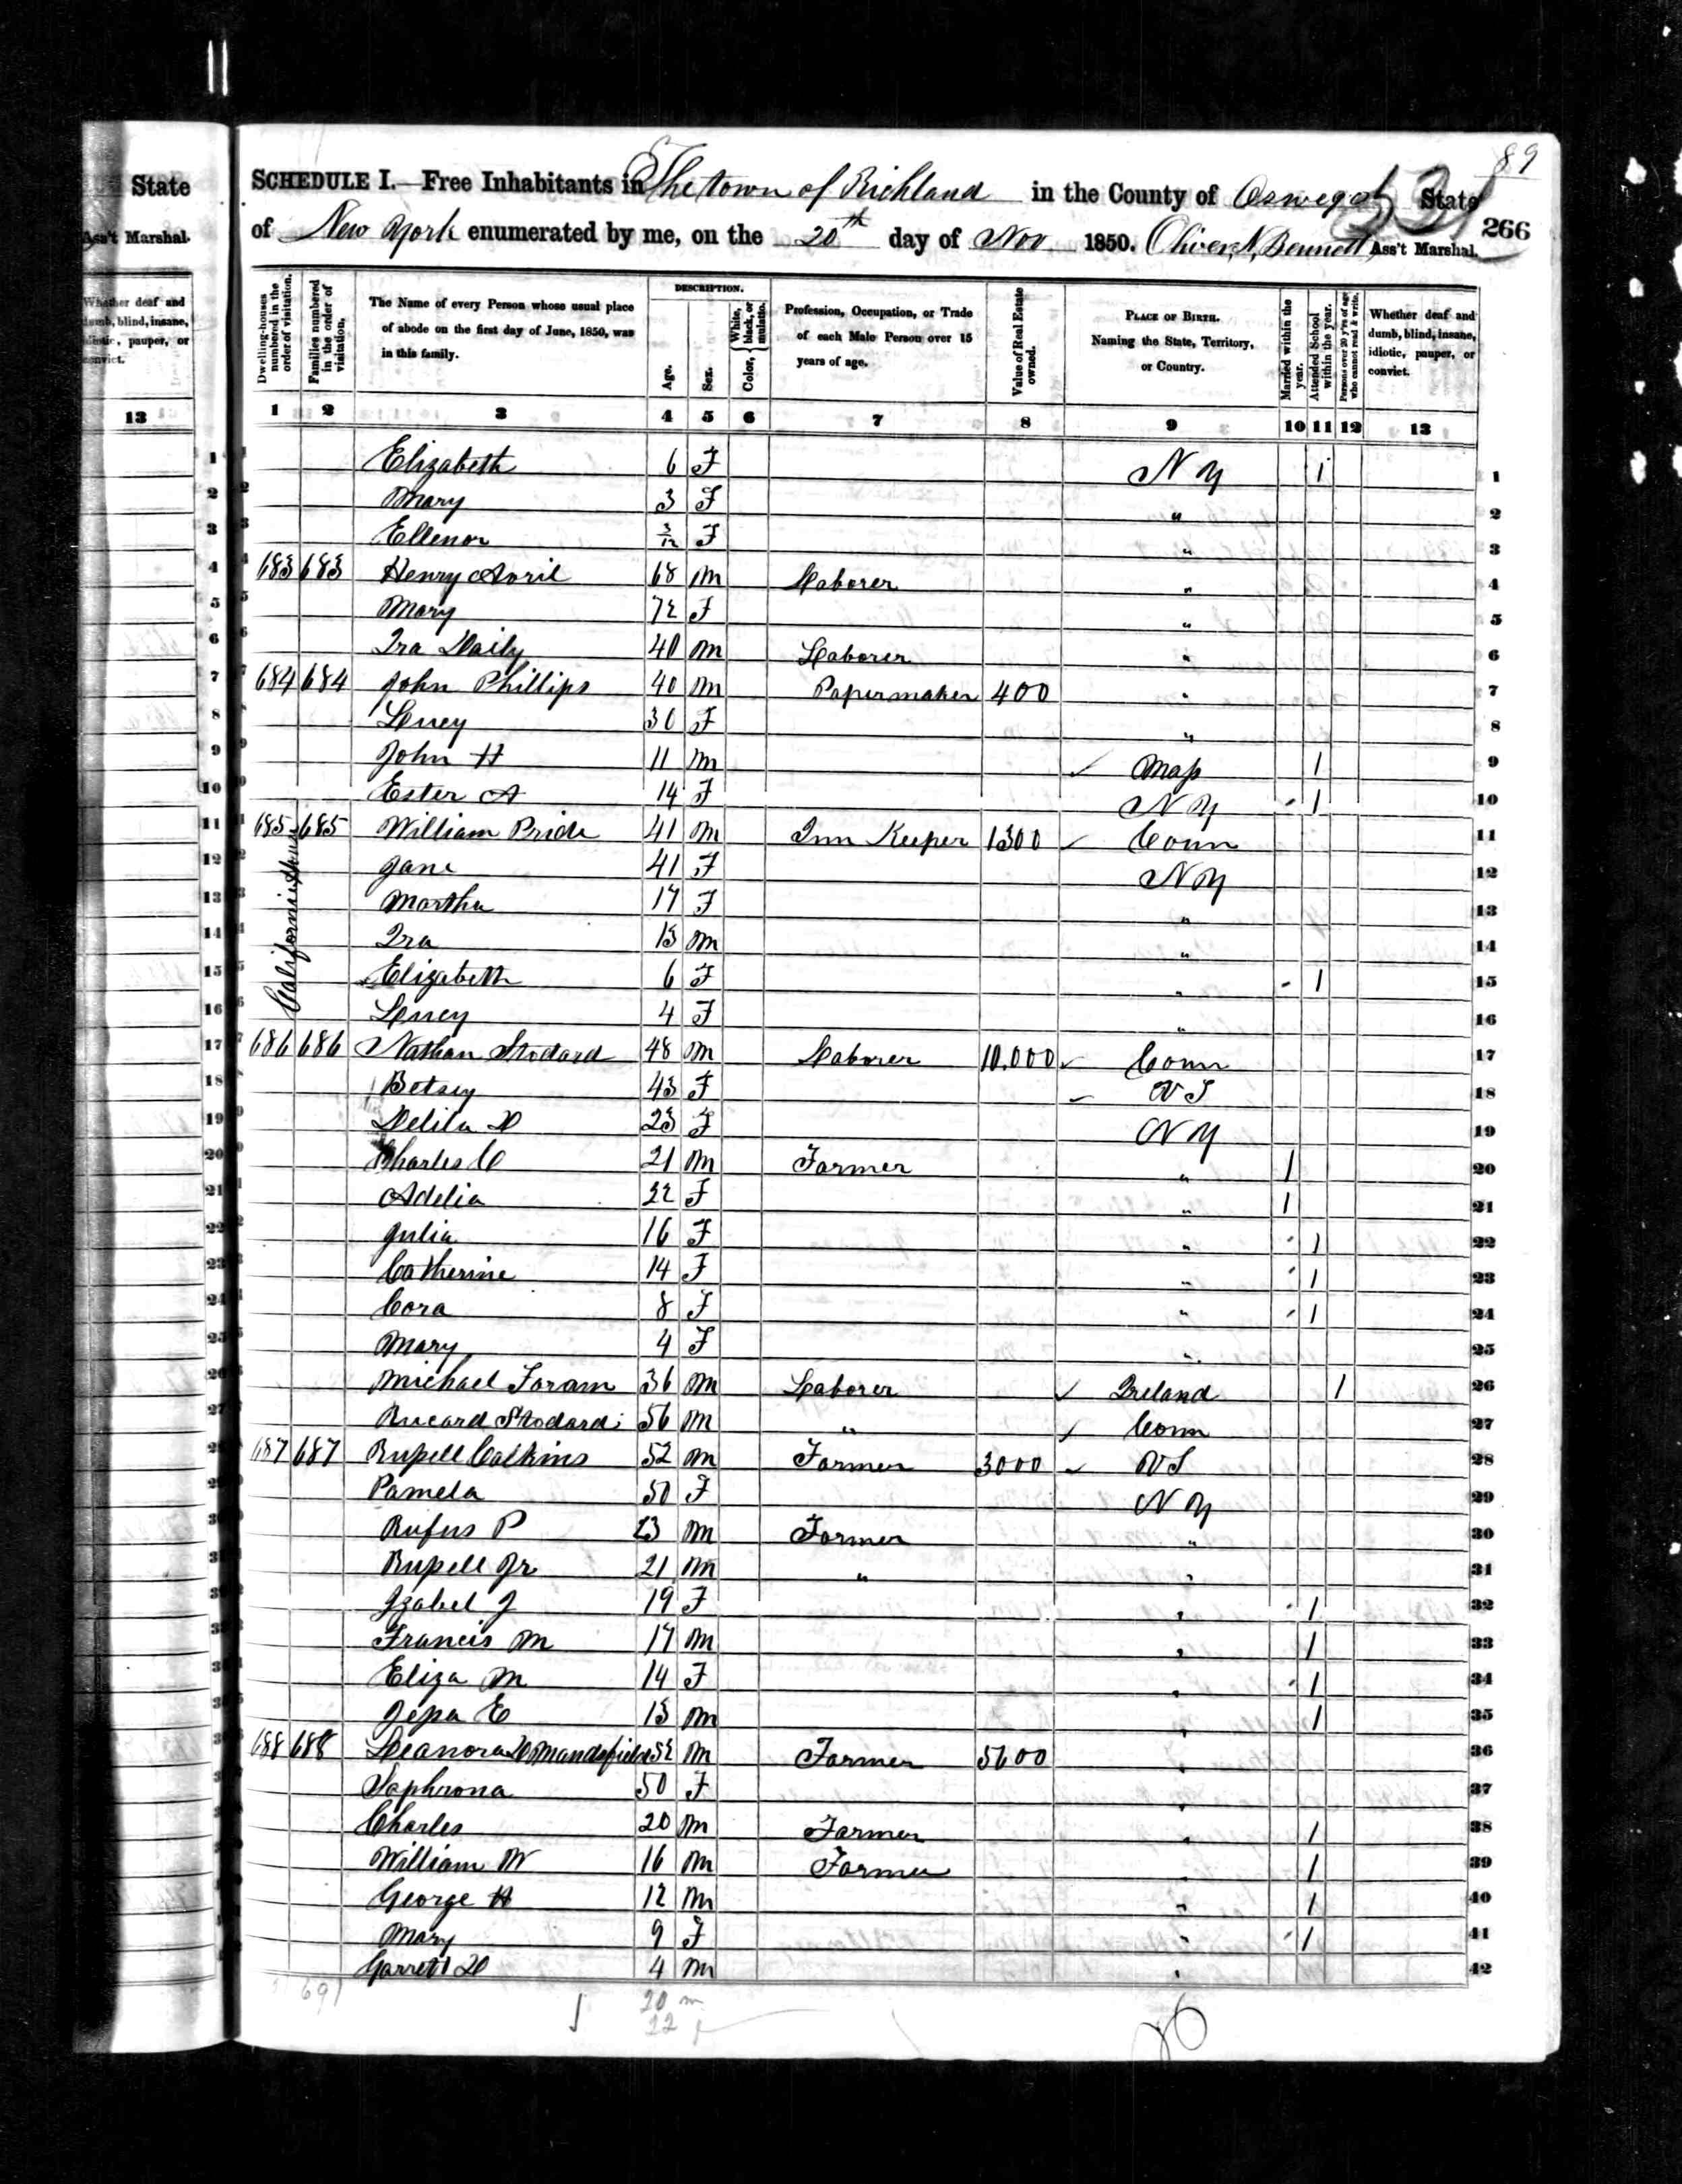 89
SCHEDULE I.—Free Inhabitants in The town of Richland in the County of Oswego State
of New York enumerated by me, on the 20th day of Nov 1850. Oliver N. Bennett Ass't Marshal.
531
266
State
Ass't Marshal.
Whether deaf and dumb, blind, insane, idiotic, pauper, or convict.
13
Dwelling-houses numbered in the order of visitation.
Families numbered in the order of visitation.
The Name of every Person whose usual place of abode on the first day of June, 1850, was in this family.
DESCRIPTION.
Age.
Sex.
Color, White, black, or mulatto.
Profession, Occupation, or Trade of each Male Person over 15 years of age.
Value of Real Estate owned.
PLACE OF BIRTH. Naming the State, Territory, or Country.
Married within the year.
Attended School within the year.
Persons over 20 y'rs of age who cannot read & write.
Whether deaf and dumb, blind, insane, idiotic, pauper, or convict.
1 2 3 4 5 6 7 8 9 10 11 12 13
1 Elizabeth 6 F N Y 1 1
2 Mary 3 F " 2
3 Ellenor 3/12 F " 3
4 683 683 Henry Avril 68 M Laborer " 4
5 Mary 72 F " 5
6 Ira Daily 40 M Laborer " 6
7 684 684 John Phillips 40 M Papermaker 400 " 7
8 Lucy 30 F " 8
9 John H 11 M ✓ Mass 1 9
10 Ester A 14 F N Y 1 10
11 685 685 William Pride 41 M Inn Keeper 1300 ✓ Conn 11
12 Jane 41 F N Y 12
13 Martha 17 F " 13
14 Ira 13 M " 14
15 Elizabeth 6 F " 1 15
16 Lucy 4 F " 16
17 686 686 Nathan Stodard 48 M Laborer 10.000 ✓ Conn 17
18 Betsey 43 F ✓ VT 18
19 Delila D 23 F N Y 19
20 Charles C 21 M Farmer " 1 20
21 Adelia 22 F " 1 21
22 Julia 16 F " 1 22
23 Catherine 14 F " 1 23
24 Cora 8 F " 1 24
25 Mary 4 F " 25
26 Michael Foram 36 M Laborer ✓ Ireland 1 26
27 Stodard 56 M " ✓ Conn 27
28 687 687 Russell Calkins 52 M Farmer 3000 ✓ VT 28
29 Pamela 50 F N Y 29
30 Rufus P 23 M Farmer " 30
31 Russell Jr 21 M " " 31
32 Izabel J 19 F " 1 32
33 Francis M 17 M " 1 33
34 Eliza M 14 F " 1 34
35 Jessa E 13 M " 1 35
36 688 688 Mandsfield 52 M Farmer 5600 " 36
37 Saphrona 50 F " 37
38 Charles 20 M Farmer " 1 38
39 William W 16 M Farmer " 1 39
40 George H 12 M " 1 40
41 Mary 9 F " 1 41
42 Garrett D 4 M " 42
691
20 m
22 f